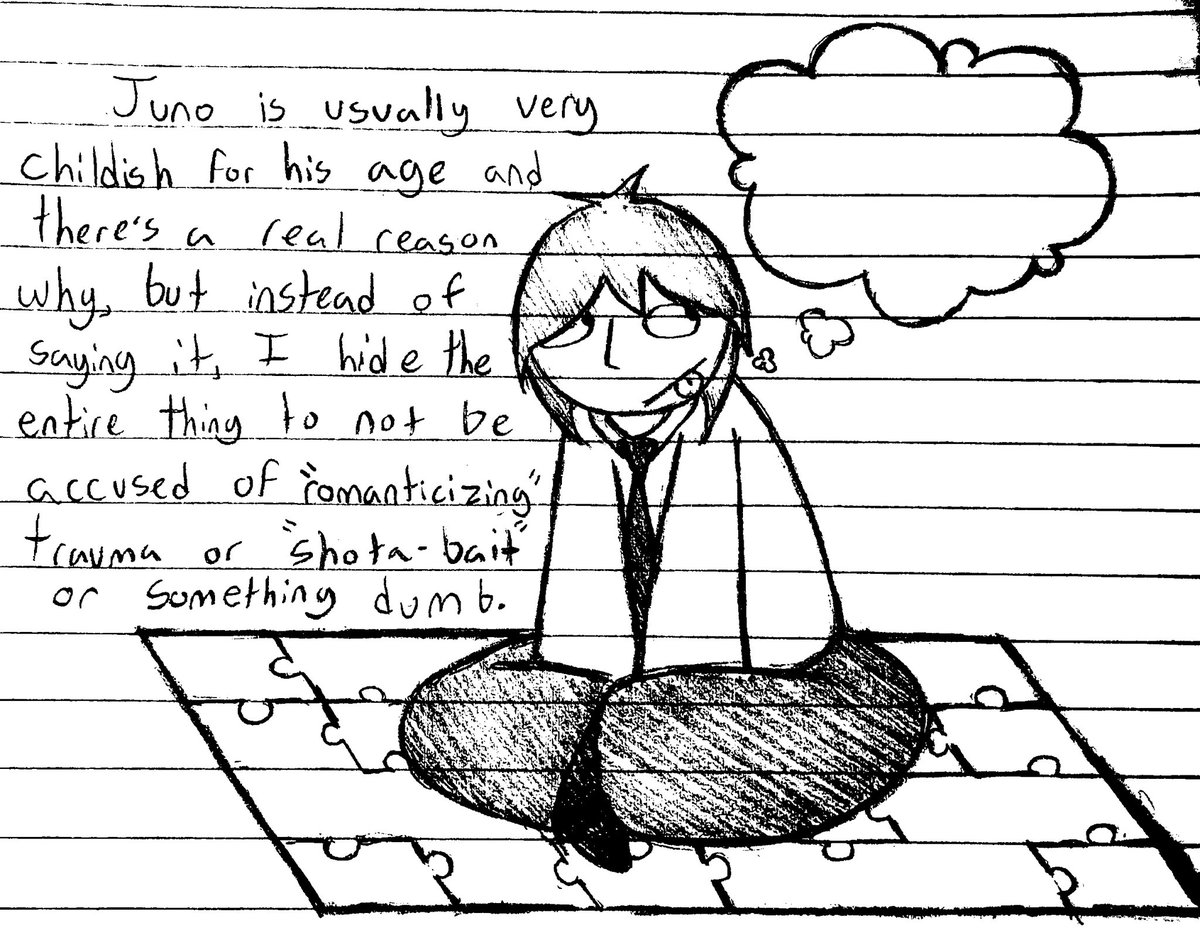 Juno is usually very
childish for his age and
there's a real reason
why, but instead of
saying it, I hide the
entire thing to not be
accused of "romanticizing"
trauma or "shota-bait"
or something dumb.